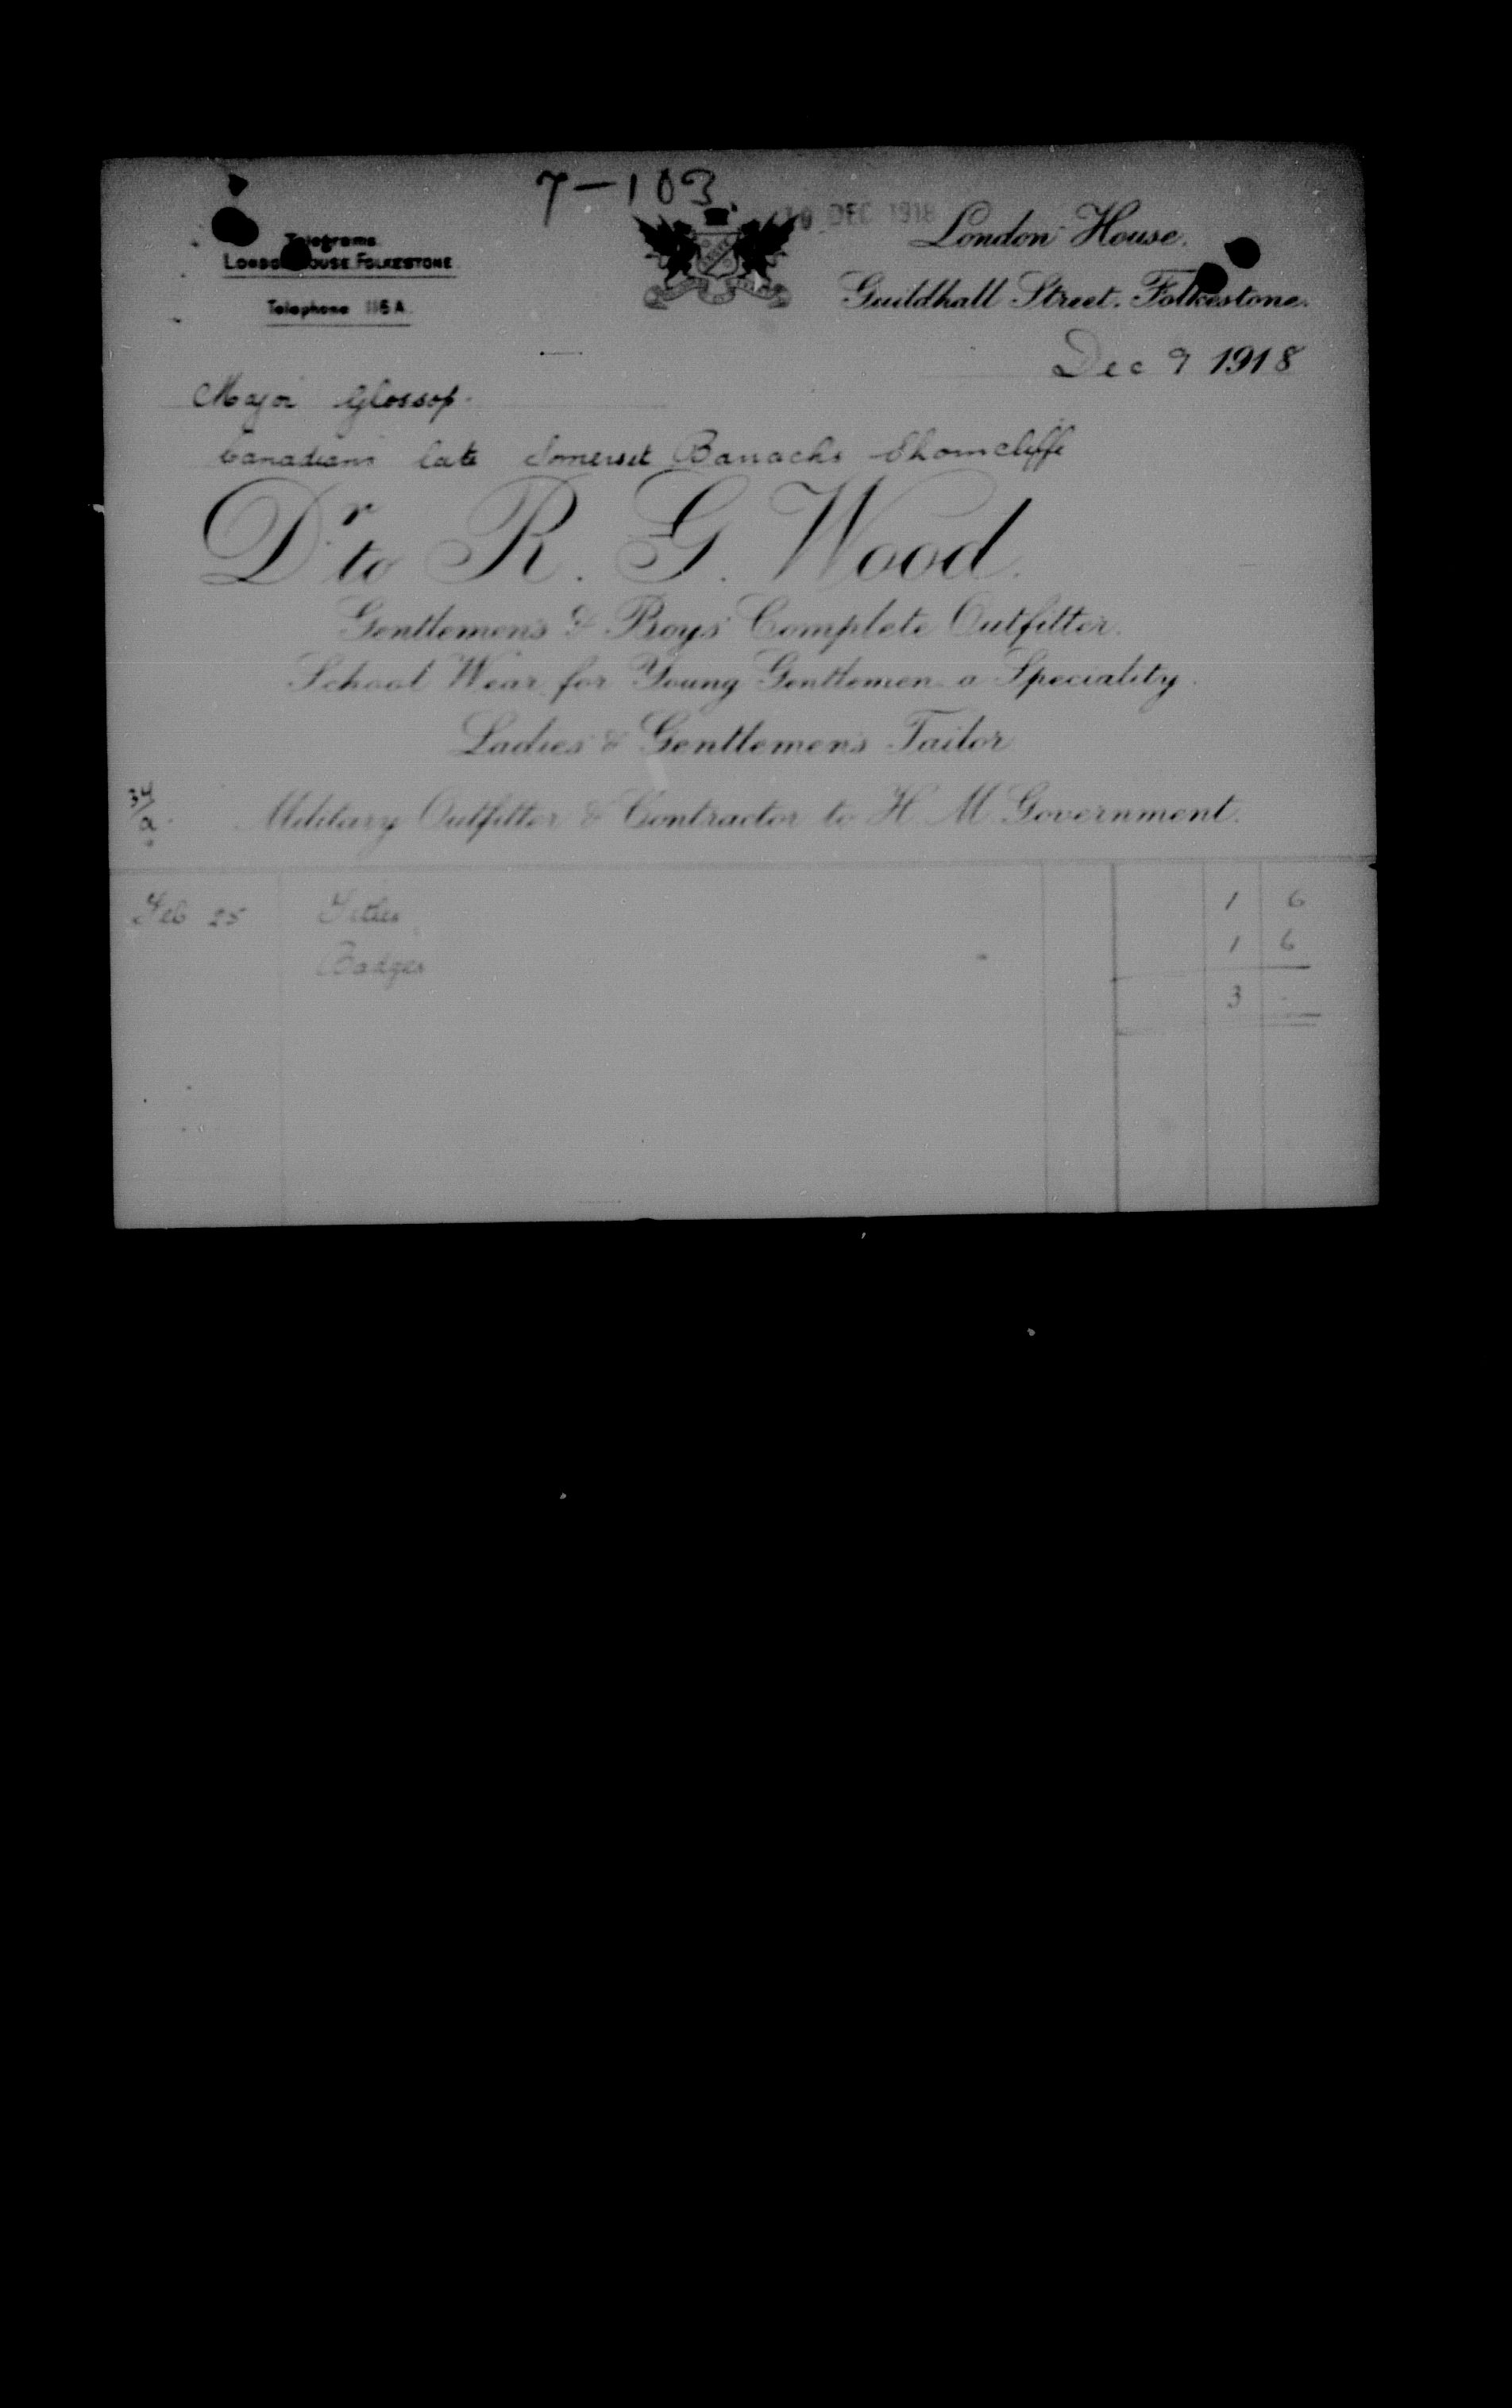 7-103
10 DEC 1918
Telegrams.
LONDON HOUSE FOLKESTONE
Telephone 116A.
London House.
Guildhall Street. Folkestone.
Dec 9 1918
Major Glossop.
Canadians late Somerset Barracks Shorncliffe
Dr to R. G. Wood.
Gentlemen's & Boys' Complete Outfitter.
School Wear for Young Gentlemen a Speciality.
Ladies' & Gentlemen's Tailor
34/a
Military Outfitter & Contractor to H. M. Government.
Feb 25 Titles 1 6
Badges 1 6
3 -